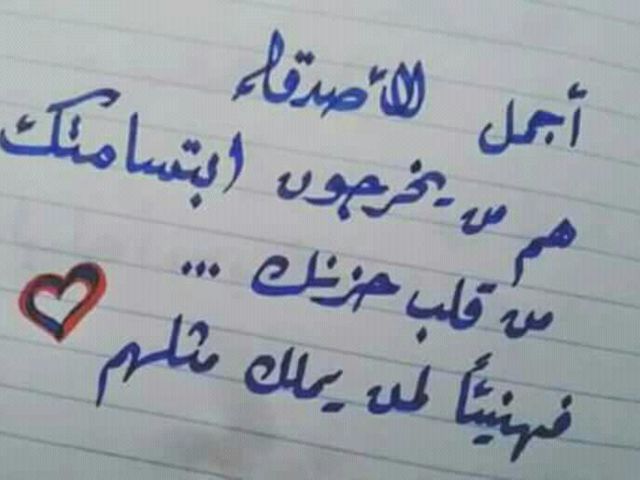 أجمل الأصدقاء
هم من يخرجون ابتسامتك
من قلب حزنك ...
فهنيئاً لمن يملك مثلهم